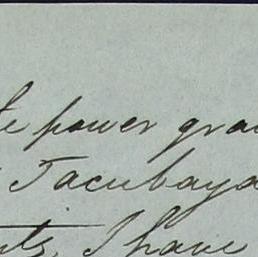 te power gra
Tacubaya
nts, I have